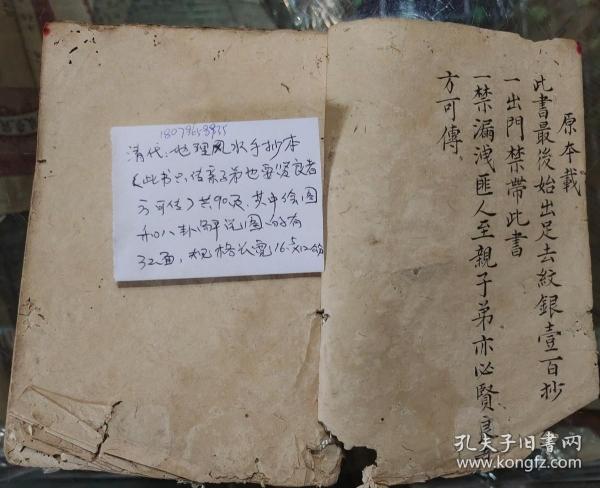 原本載
此書最後始出足去紋銀壹百抄
一出門禁帶此書
一禁漏洩匪人至親子弟亦必賢良
方可傳
清代:地理风水手抄本
《此书只传亲子弟也要贤良者
方可传》共90页.其中绘图
和八卦解说图的有
32面,规格长宽16.5x12
孔夫子旧书网
www.kongfz.com